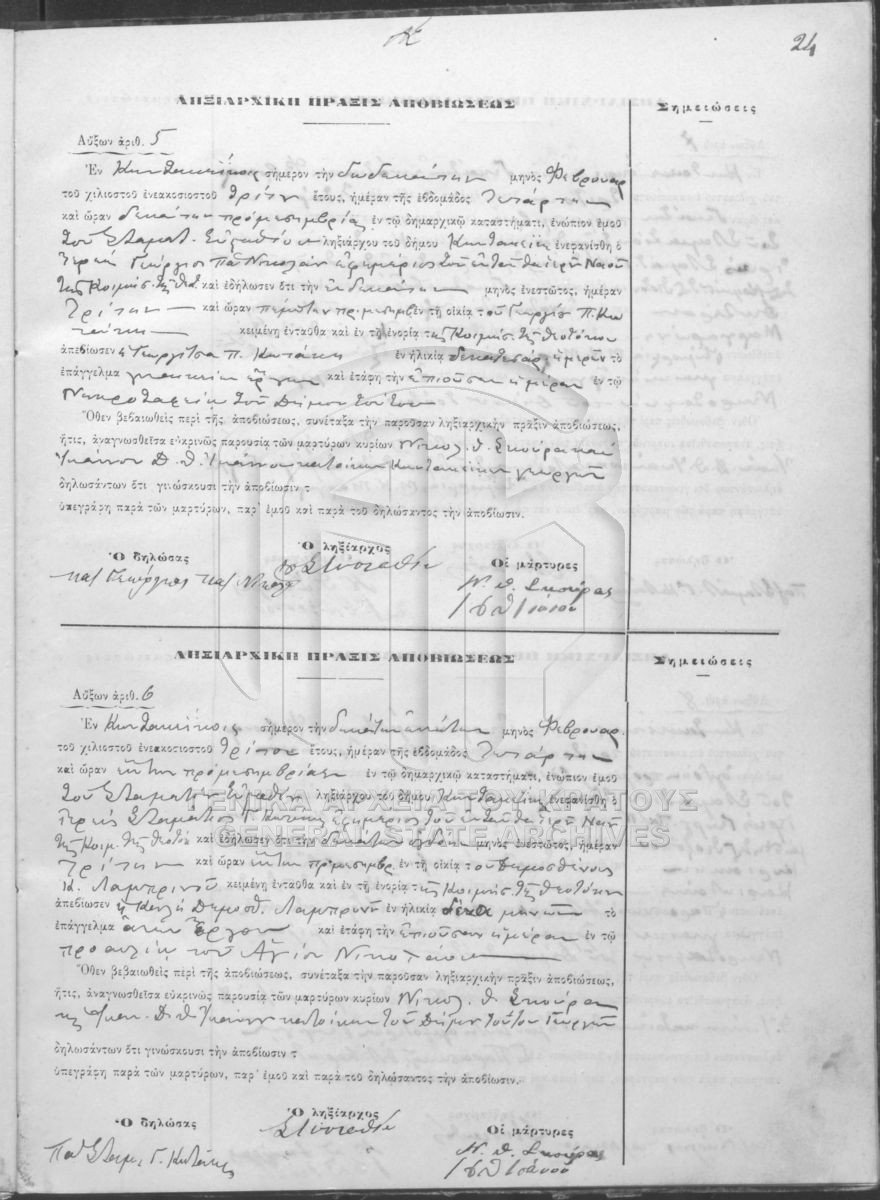 24
ΛΗΞΙΑΡΧΙΚΗ ΠΡΑΞΙΣ ΑΠΟΒΙΩΣΕΩΣ
Σημειώσεις
Αὔξων ἀριθ. 5
Ἐν σήμερον τὴν δωδεκάτην μηνὸς Φεβρουαρ
τοῦ χιλιοστοῦ ἐνεακοσιοστοῦ τρίτου ἔτους, ἡμέραν τῆς ἑβδομάδος Τετάρτην
καὶ ὥραν δεκάτην πρὸ μεσημβρίας ἐν τῷ δημαρχικῷ καταστήματι, ἐνώπιον ἐμοῦ
τοῦ Σταματ. Εὐσταθίου ληξιάρχου τοῦ δήμου ἐνεφανίσθη ὁ
Ἱερεὺς Γεώργιος Πα Νικολάου ἐφημέριος τοῦ ἐνταῦθα Ἱεροῦ Ναοῦ
τῆς Κοιμήσ. τῆς Θεοτ. καὶ ἐδήλωσεν ὅτι τὴν ἑνδεκάτην μηνὸς ἐνεστῶτος, ἡμέραν
Τρίτην καὶ ὥραν πέμπτην πρ. μεσημβ ἐν τῇ οἰκίᾳ τοῦ Γεωργίου Π. Κω
τάκη κειμένῃ ἐνταῦθα καὶ ἐν τῇ ἐνορίᾳ τῆς Κοιμήσ. τῆς Θεοτόκου
ἀπεβίωσεν ἡ Γεωργίτσα Π. Κωτάκη ἐν ἡλικίᾳ ἡμερῶν τὸ
ἐπάγγελμα καὶ ἐτάφη τὴν ἐπιοῦσαν ἡμέραν ἐν τῷ
Νεκροταφείῳ τοῦ Δήμου τούτου
Ὅθεν βεβαιωθεὶς περὶ τῆς ἀποβιώσεως, συνέταξα τὴν παροῦσαν ληξιαρχικὴν πρᾶξιν ἀποβιώσεως,
ἥτις, ἀναγνωσθεῖσα εὐκρινῶς παρουσίᾳ τῶν μαρτύρων κυρίων Νικολ. Θ. Σκούρα καὶ
Ἰωάννου Δ. Θ. Ἰωάννου κατοίκων γεωργῶν
δηλωσάντων ὅτι γινώσκουσι τὴν ἀποβίωσιν τ
ὑπεγράφη παρὰ τῶν μαρτύρων, παρ' ἐμοῦ καὶ παρὰ τοῦ δηλώσαντος τὴν ἀποβίωσιν.
Ὁ δηλώσας
Ὁ ληξίαρχος
Οἱ μάρτυρες
παΓεώργιος παΝικολα
Ν. Θ. Σκούρας
ΛΗΞΙΑΡΧΙΚΗ ΠΡΑΞΙΣ ΑΠΟΒΙΩΣΕΩΣ
Σημειώσεις
Αὔξων ἀριθ. 6
Ἐν σήμερον τὴν δεκάτην ἐνάτην μηνὸς Φεβρουαρ.
τοῦ χιλιοστοῦ ἐνεακοσιοστοῦ τρίτου ἔτους, ἡμέραν τῆς ἑβδομάδος Τετάρτην
καὶ ὥραν ἕκτην πρὸ μεσημβρίας ἐν τῷ δημαρχικῷ καταστήματι, ἐνώπιον ἐμοῦ
τοῦ Σταματίου Εὐσταθίου ληξιάρχου τοῦ δήμου ἐνεφανίσθη ὁ
Ἱερεὺς Σταμάτιος Γ. Κωτάκης ἐφημέριος τοῦ ἐνταῦθα Ἱεροῦ Ναοῦ
τῆς Κοιμ. τῆς Θεοτόκ καὶ ἐδήλωσεν ὅτι τὴν δεκάτην ὀγδόην μηνὸς ἐνεστῶτος, ἡμέραν
Τρίτην καὶ ὥραν ἕκτην πρ. μεσημβρ. ἐν τῇ οἰκίᾳ τοῦ Δημοσθένους
Κ. Λαμπρινοῦ κειμένῃ ἐνταῦθα καὶ ἐν τῇ ἐνορίᾳ τῆς Κοιμήσ. τῆς Θεοτόκου
ἀπεβίωσεν ἡ Δημοσθ. Λαμπρινοῦ ἐν ἡλικίᾳ δέκα μηνῶν τὸ
ἐπάγγελμα ἄνευ ἔργου καὶ ἐτάφη τὴν ἐπιοῦσαν ἡμέραν ἐν τῷ
προαυλίῳ τοῦ Ἁγίου Νικολάου
Ὅθεν βεβαιωθεὶς περὶ τῆς ἀποβιώσεως, συνέταξα τὴν παροῦσαν ληξιαρχικὴν πρᾶξιν ἀποβιώσεως,
ἥτις, ἀναγνωσθεῖσα εὐκρινῶς παρουσίᾳ τῶν μαρτύρων κυρίων Νικολ. Θ. Σκούρα
κ Ἰωάν. Δ. Θ. Ἰωάννου κατοίκων τοῦ Δήμου τούτου Γεωργῶν
δηλωσάντων ὅτι γινώσκουσι τὴν ἀποβίωσιν τ
ὑπεγράφη παρὰ τῶν μαρτύρων, παρ' ἐμοῦ καὶ παρὰ τοῦ δηλώσαντος τὴν ἀποβίωσιν.
Ὁ δηλώσας
Ὁ ληξίαρχος
Οἱ μάρτυρες
Πα Σταμ. Γ. Κωτάκης
Ν. Θ. Σκούρας
ΓΕΝΙΚΑ ΑΡΧΕΙΑ ΤΟΥ ΚΡΑΤΟΥΣ
GENERAL STATE ARCHIVES